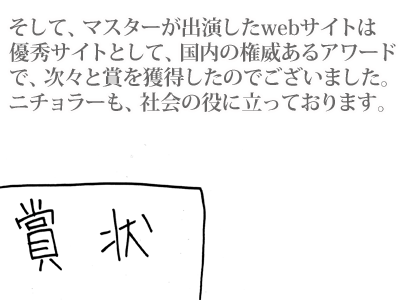 そして、マスターが出演したwebサイトは
優秀サイトとして、国内の権威あるアワード
で、次々と賞を獲得したのでございました。
ニチョラーも、社会の役に立っております。
賞状